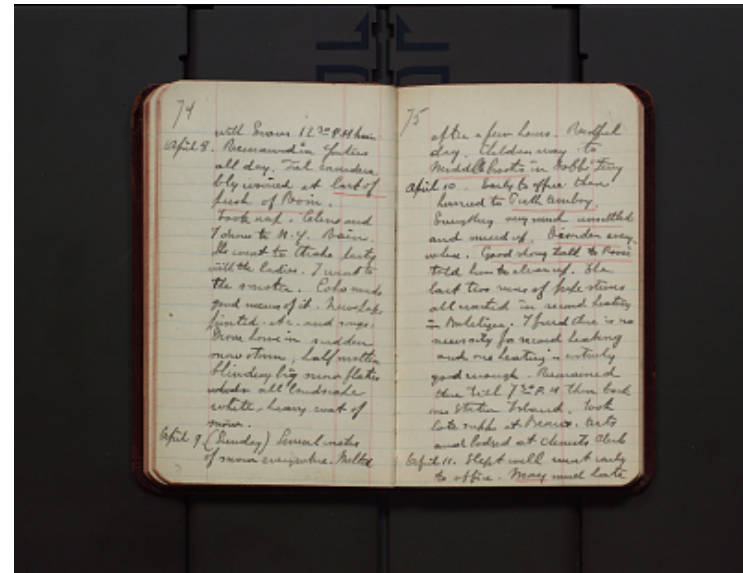 74
with Evans 12 30 P.M. train
April 8. Remained in Yonkers
all day. Felt considera
bly worried at lack of
push of Rossi.
Took nap. Celine and
I drove to N.Y. Rain.
She went to party
with the ladies. I went to
the smoker.
good menu of it.
printed. etc. and songs.
Drove home in sudden
snow storm, half molten
blinding big snow flakes
whole all landscape
white, heavy coat of
snow.
April 9 (Sunday) Several inches
of snow everywhere. Melted
75
after a few hours. Restful
day. Children away to
Middle in
April 10. Early to office then
hurried to Perth Amboy.
Everything very much unsettled
and mixed up. every
where. Good strong talk to Rossi
told him to clean up. The
last two runs of
all in second heating
in . I find there is no
necessity for second heating
and one heating is entirely
good enough. Remained
there till 7 30 P.M. then back
via Staten Island. Took
late supper at
and lodged at Chemists Club
April 11. Slept well went early
to office. May much